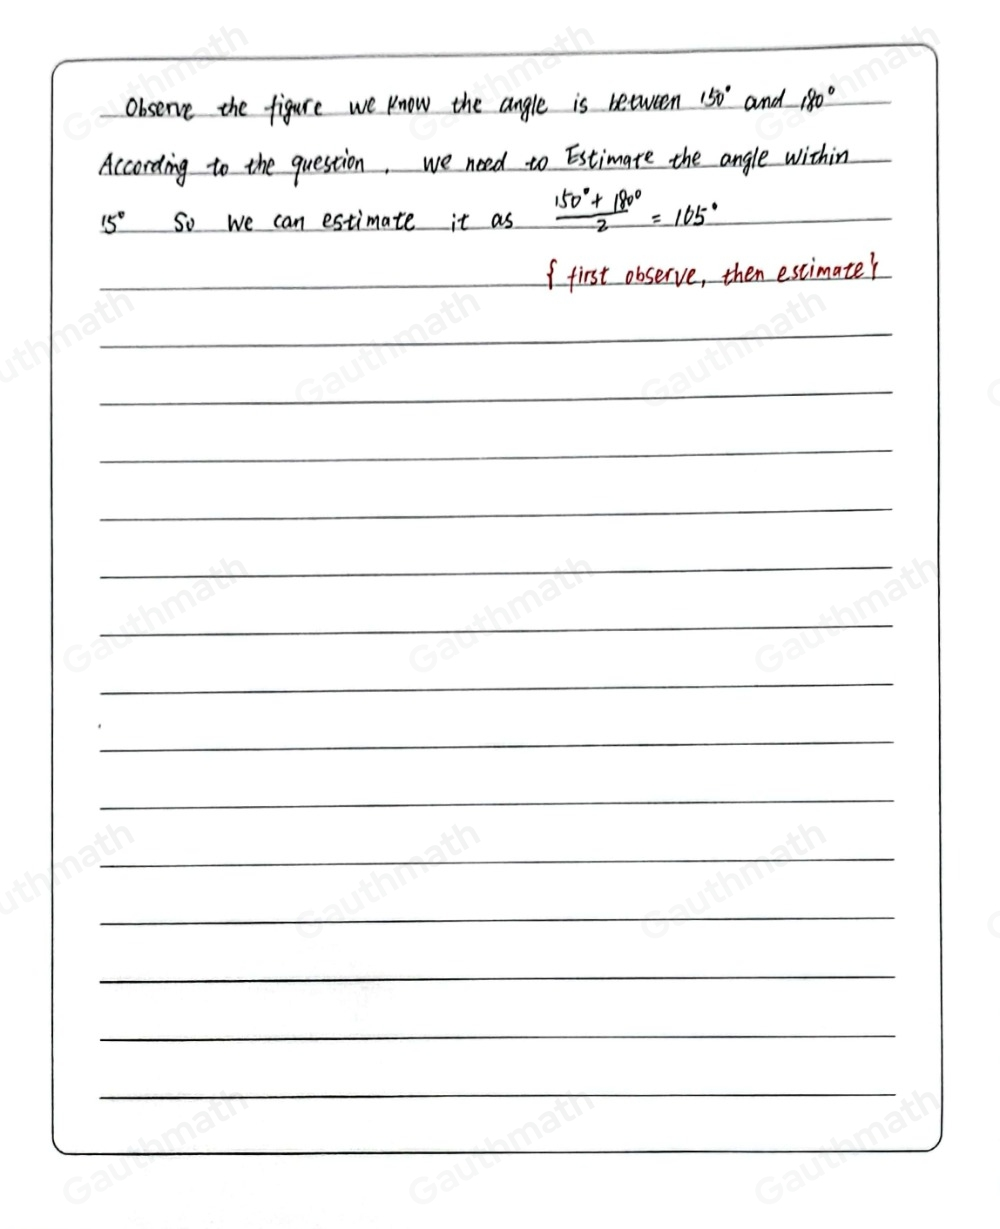 Observe the figure we know the angle is between 150° and 180°
According to the question, we need to Estimate the angle within
15° So we can estimate it as (150° + 180°)/2 = 165°
{first observe, then estimate}
Gauthmath